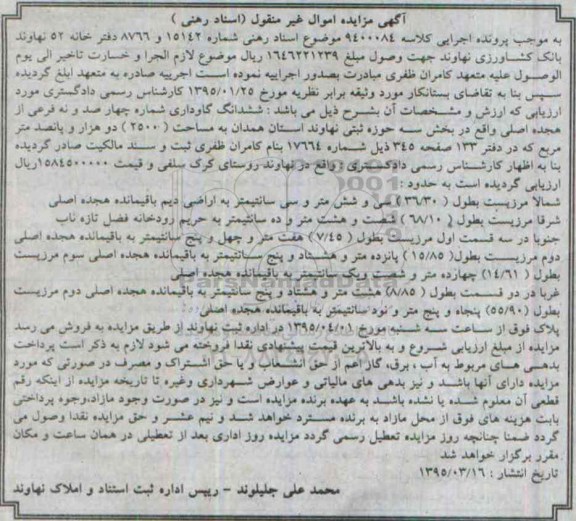 آگهی مزایده اموال غیر منقول (اسناد رهنی)
به موجب پرونده اجرایی کلاسه ۹۴۰۰۰۸۴ موضوع اسناد رهنی شماره ۱۵۱۴۲ و ۸۷۶۶ دفتر خانه ۵۲ نهاوند
بانک کشاورزی نهاوند جهت وصول مبلغ ۱۶۴۶۲۲۱۲۳۹ ریال موضوع لازم الجرا و خسارت تاخیر الی یوم
الوصول علیه متعهد کامران ظفری مبادرت بصدور اجراییه نموده است اجرییه صادره به متعهد ابلغ گردیده
سپس بنا به تقاضای بستانکار مورد وثیقه برابر نظریه مورخ ۱۳۹۵/۰۱/۲۵ کارشناس رسمی دادگستری مورد
ارزیابی که ارزش و مشخصات آن بشرح ذیل می باشد : ششدانگ گاوداری شماره چهار صد و نه فرعی از
هجده اصلی واقع در بخش سه حوزه ثبتی نهاوند استان همدان به مساحت (۲۵۰۰) دو هزار و پانصد متر
مربع که در دفتر ۱۳۳ صفحه ۳۴۵ ذیل شماره ۱۷۶۶۴ بنام کامران ظفری ثبت و سند مالکیت صادر گردیده
بنا به اظهار کارشناس رسمی دادگستری و واقع در نهاوند روستای کرک سلفی و قیمت ۱۵۸۴۵۰۰۰۰۰ریال
ارزیابی گردیده است به حدود :
شمالا مرزیست بطول (۳۶/۳۰) سی و شش متر و سی سانتیمتر به اراضی دیم باقیمانده هجده اصلی
شرقا مرزیست بطول (۶۸/۱۰) شصت و هشت متر و ده سانتیمتر به حریم رودخانه فصل تازه ناب
جنوبا در سه قسمت اول مرزیست بطول (۷/۴۵) هفت متر و چهل و پنج سانتیمتر به باقیمانده هجده اصلی
دوم مرزیست بطول (۱۵/۸۵) پانزده متر و هشتاد و پنج سانتیمتر به باقیمانده هجده اصلی سوم مرزیست
بطول (۱۴/۶۱) چهارده متر و شصت ویک سانتیمتر به باقیمانده هجده اصلی
غربا در دو قسمت بطول (۸/۸۵) هشت متر و هشتاد و پنج سانتیمتر به باقیمانده هجده اصلی دوم مرزیست
بطول (۵۵/۹۰) پنجاه و پنج متر و نود سانتیمتر به باقیمانده هجده اصلی .
پلاک فوق از ساعت سه شنبه مورخ ۱۳۹۵/۰۴/۰۱ در اداره ثبت نهاوند از طریق مزایده به فروش می رسد
مزایده از مبلغ ارزیابی شروع و به بالاترین قیمت پیشنهادی نقدا فروخته می شود لازم به ذکر است پرداخت
بدهی های مربوط به آب ، برق، گاز اعم از حق انشعاب و یا حق اشتراک و مصرف در صورتی که مورد
مزایده دارای آنها باشد و نیز بدهی های مالیاتی و عوارض شهرداری وغیره تا تاریخه مزایده از اینکه رقم
قطعی آن معلوم شده یا نشده باشد به عهده برنده مزایده است و نیز در صورت وجود مازاد،وجوه پرداختی
بابت هزینه های فوق از محل مازاد به برنده مسترد خواهد شد و نیم عشر و حق مزایده نقدا وصول می
گردد ضمنا چنانچه روز مزایده تعطیل رسمی گردد مزایده روز اداری بعد از تعطیلی در همان ساعت و مکان
مقرر برگزار خواهد شد
تاریخ انتشار : ۱۳۹۵/۰۳/۱۶
محمد علی جلیلوند - رییس اداره ثبت اسناد و املاک نهاوند